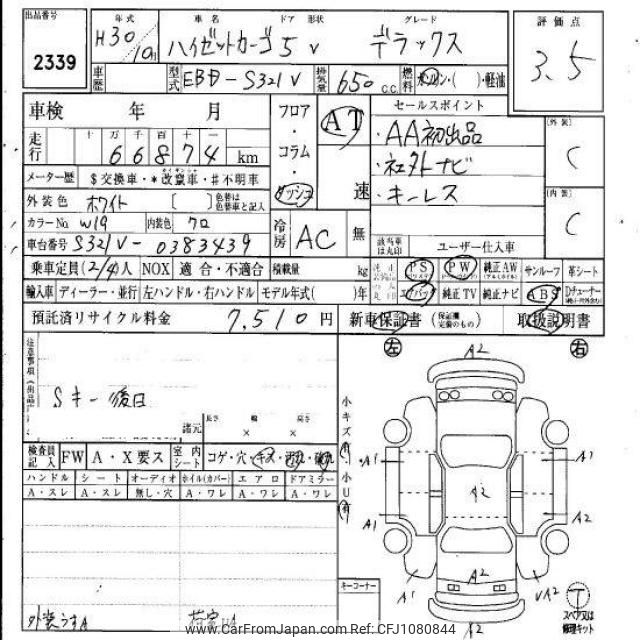 出品番号 年式 車名 ドア 形状 グレード 評価点
2339 H30/10月 ハイゼットカーゴ 5 V デラックス 3.5
車歴 型式 EBD-S321V 排気量 650 c.c. 燃料 ガソリン・( )・軽油
車検 年 月 フロア・コラム・ダッシュ AT 速 セールスポイント
走行 十 万 千 百 十 一
66874 km
・AA初出品
・社外ナビ
・キーレス
メーター歴 $交換車・*改ざん車・#不明車
外装色 ホワイト [ ] 色替は色替車と記入
カラーNo. W19 内装色 クロ
車台番号 S321V-0383439
冷房 AC 無
[外装] C
[内装] C
該当車は丸印 ユーザー仕入車
乗車定員 (2/4)人 NOX 適合・不適合 積載量 kg PS PW 純正AW サンルーフ 革シート
輸入車 ディーラー・並行 左ハンドル・右ハンドル モデル年式( )年 エアバッグ 純正TV 純正ナビ ABS
預託済リサイクル料金 7,510円 新車保証書 (保証欄完備のもの) 取扱説明書
注意事項
Sキー後日
諸元 長さ × 幅 × 高さ
検査員記入 FW A・X要ス 室内シート コゲ・穴・キズ
ハンドル シート オーディオ ホイル(カバー) エアロ ドアミラー
A・スレ A・スレ 無し・穴 A・ワレ A・ワレ A・ワレ
外装うすA
小キズ有・小U有
左 右
A2
A1 A1
A2
A1 A2
A2
A1 A2
キーコーナー
T
スペア又は修理キット
www.CarFromJapan.com Ref: CFJ1080844